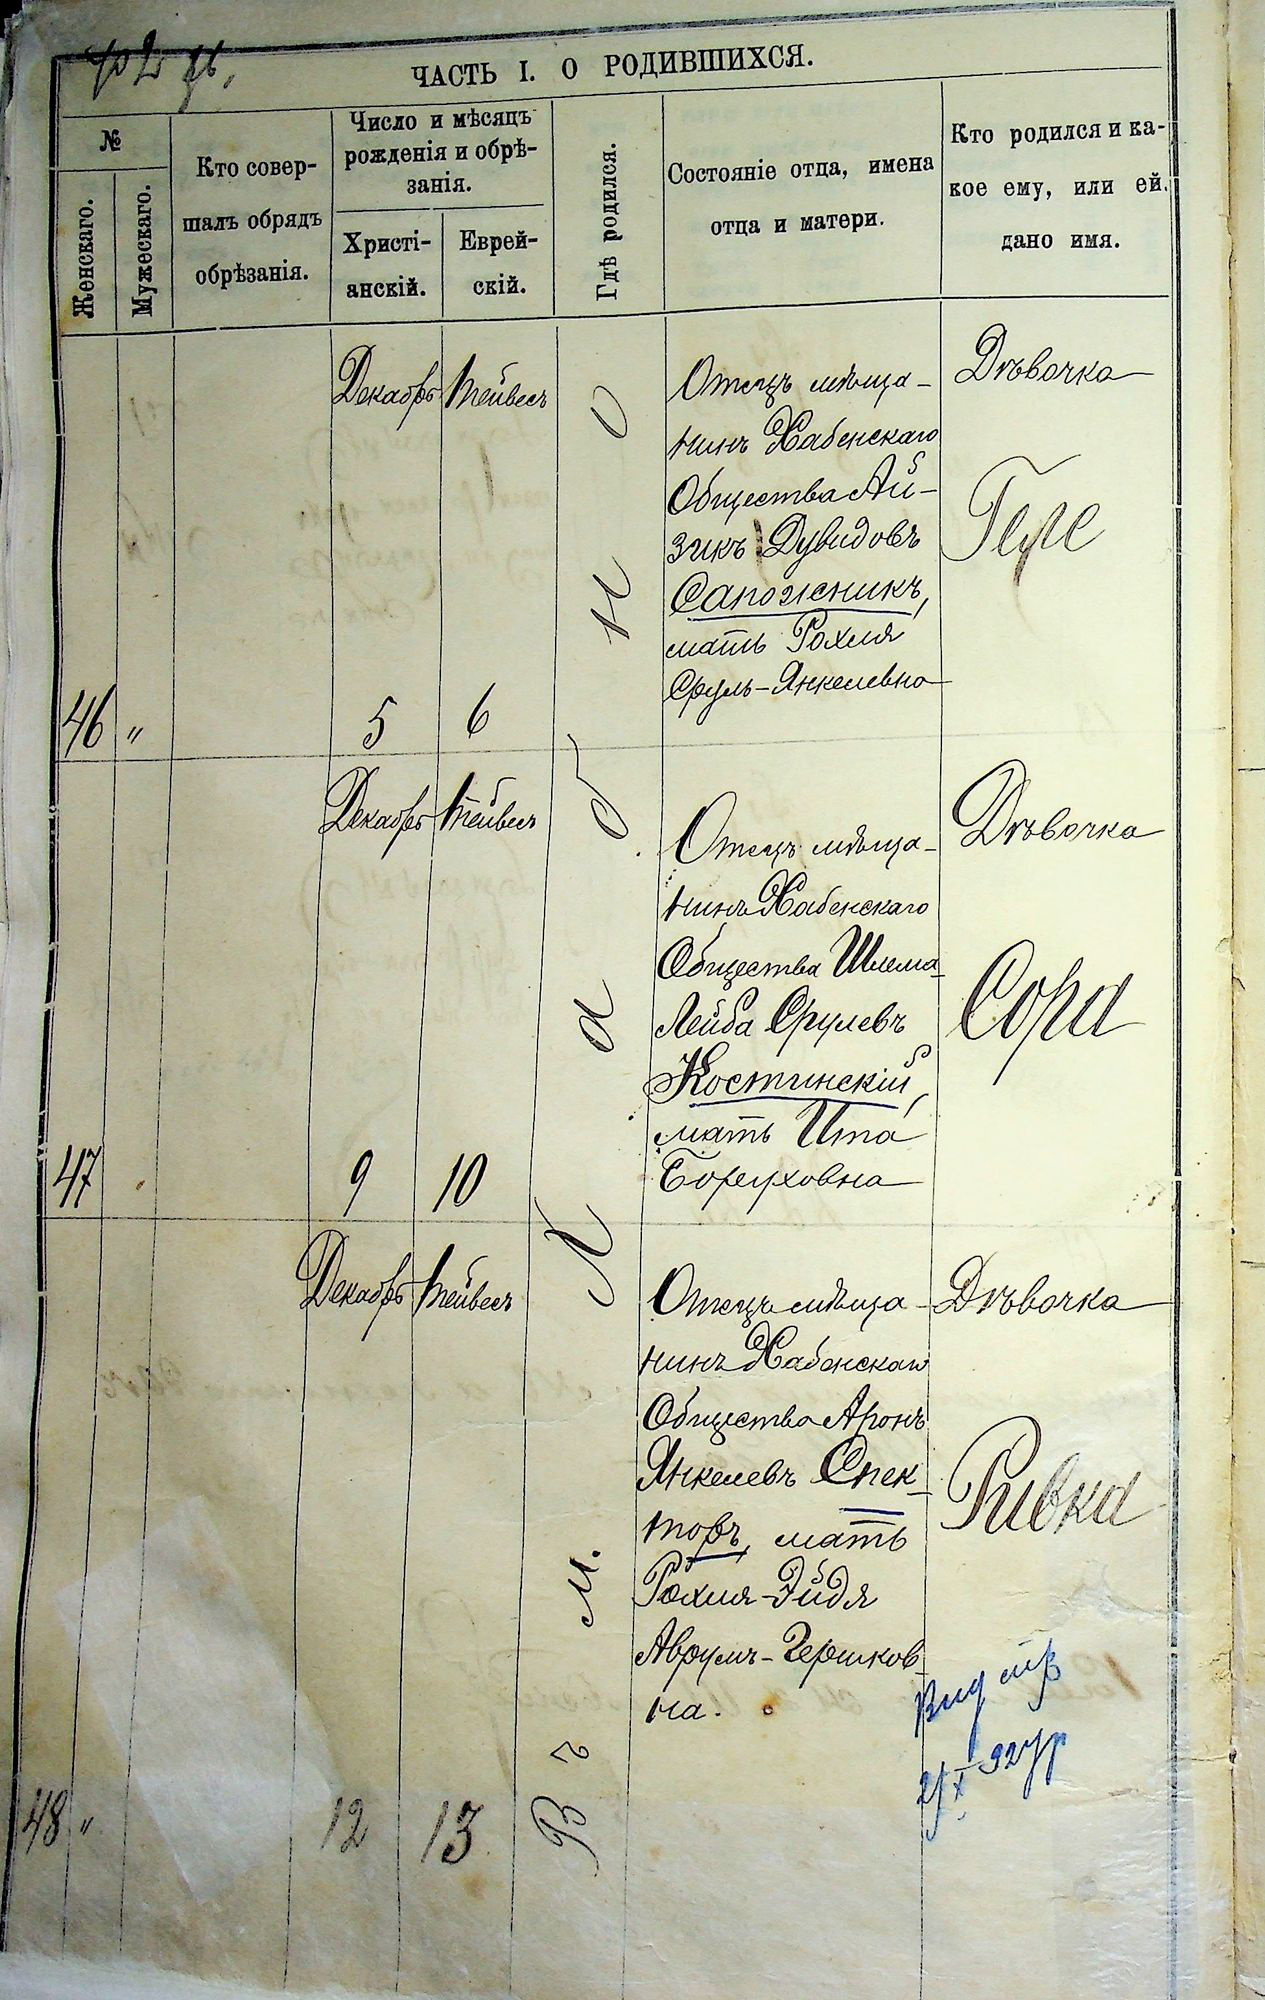 ЧАСТЬ I. О РОДИВШИХСЯ.
№
Женскаго.
Мужескаго.
Кто совер-
шалъ обрядъ
обрѣзанія.
Число и мѣсяцъ
рожденія и обрѣ-
занія.
Христі-
анскій.
Еврей-
скій.
Гдѣ родился.
Состояніе отца, имена
отца и матери.
Кто родился и ка-
кое ему, или ей.
дано имя.
Въ м. Хабно
46
"
Декабрь
5
Тейвесъ
6
Отецъ мѣща-
нинъ Хабенскаго
Общества Ай-
зикъ Дувидовъ
Сапожникъ,
мать Рохля
Сруль-Янкелевна
Дѣвочка
47
Декабрь
9
Тейвесъ
10
Отецъ мѣща-
нинъ Хабенскаго
Общества Шлема-
Лейба Срулевъ
Костинскій,
мать Ита
Боруховна
Дѣвочка
Сора
48
"
Декабрь
12
Тейвесъ
13
Отецъ мѣща-
нинъ Хабенскаго
Общества Аронъ
Янкелевъ Спек-
торъ, мать
Рохля-Эйдя
Аврумъ-Гершков-
на.
Дѣвочка
Ривка